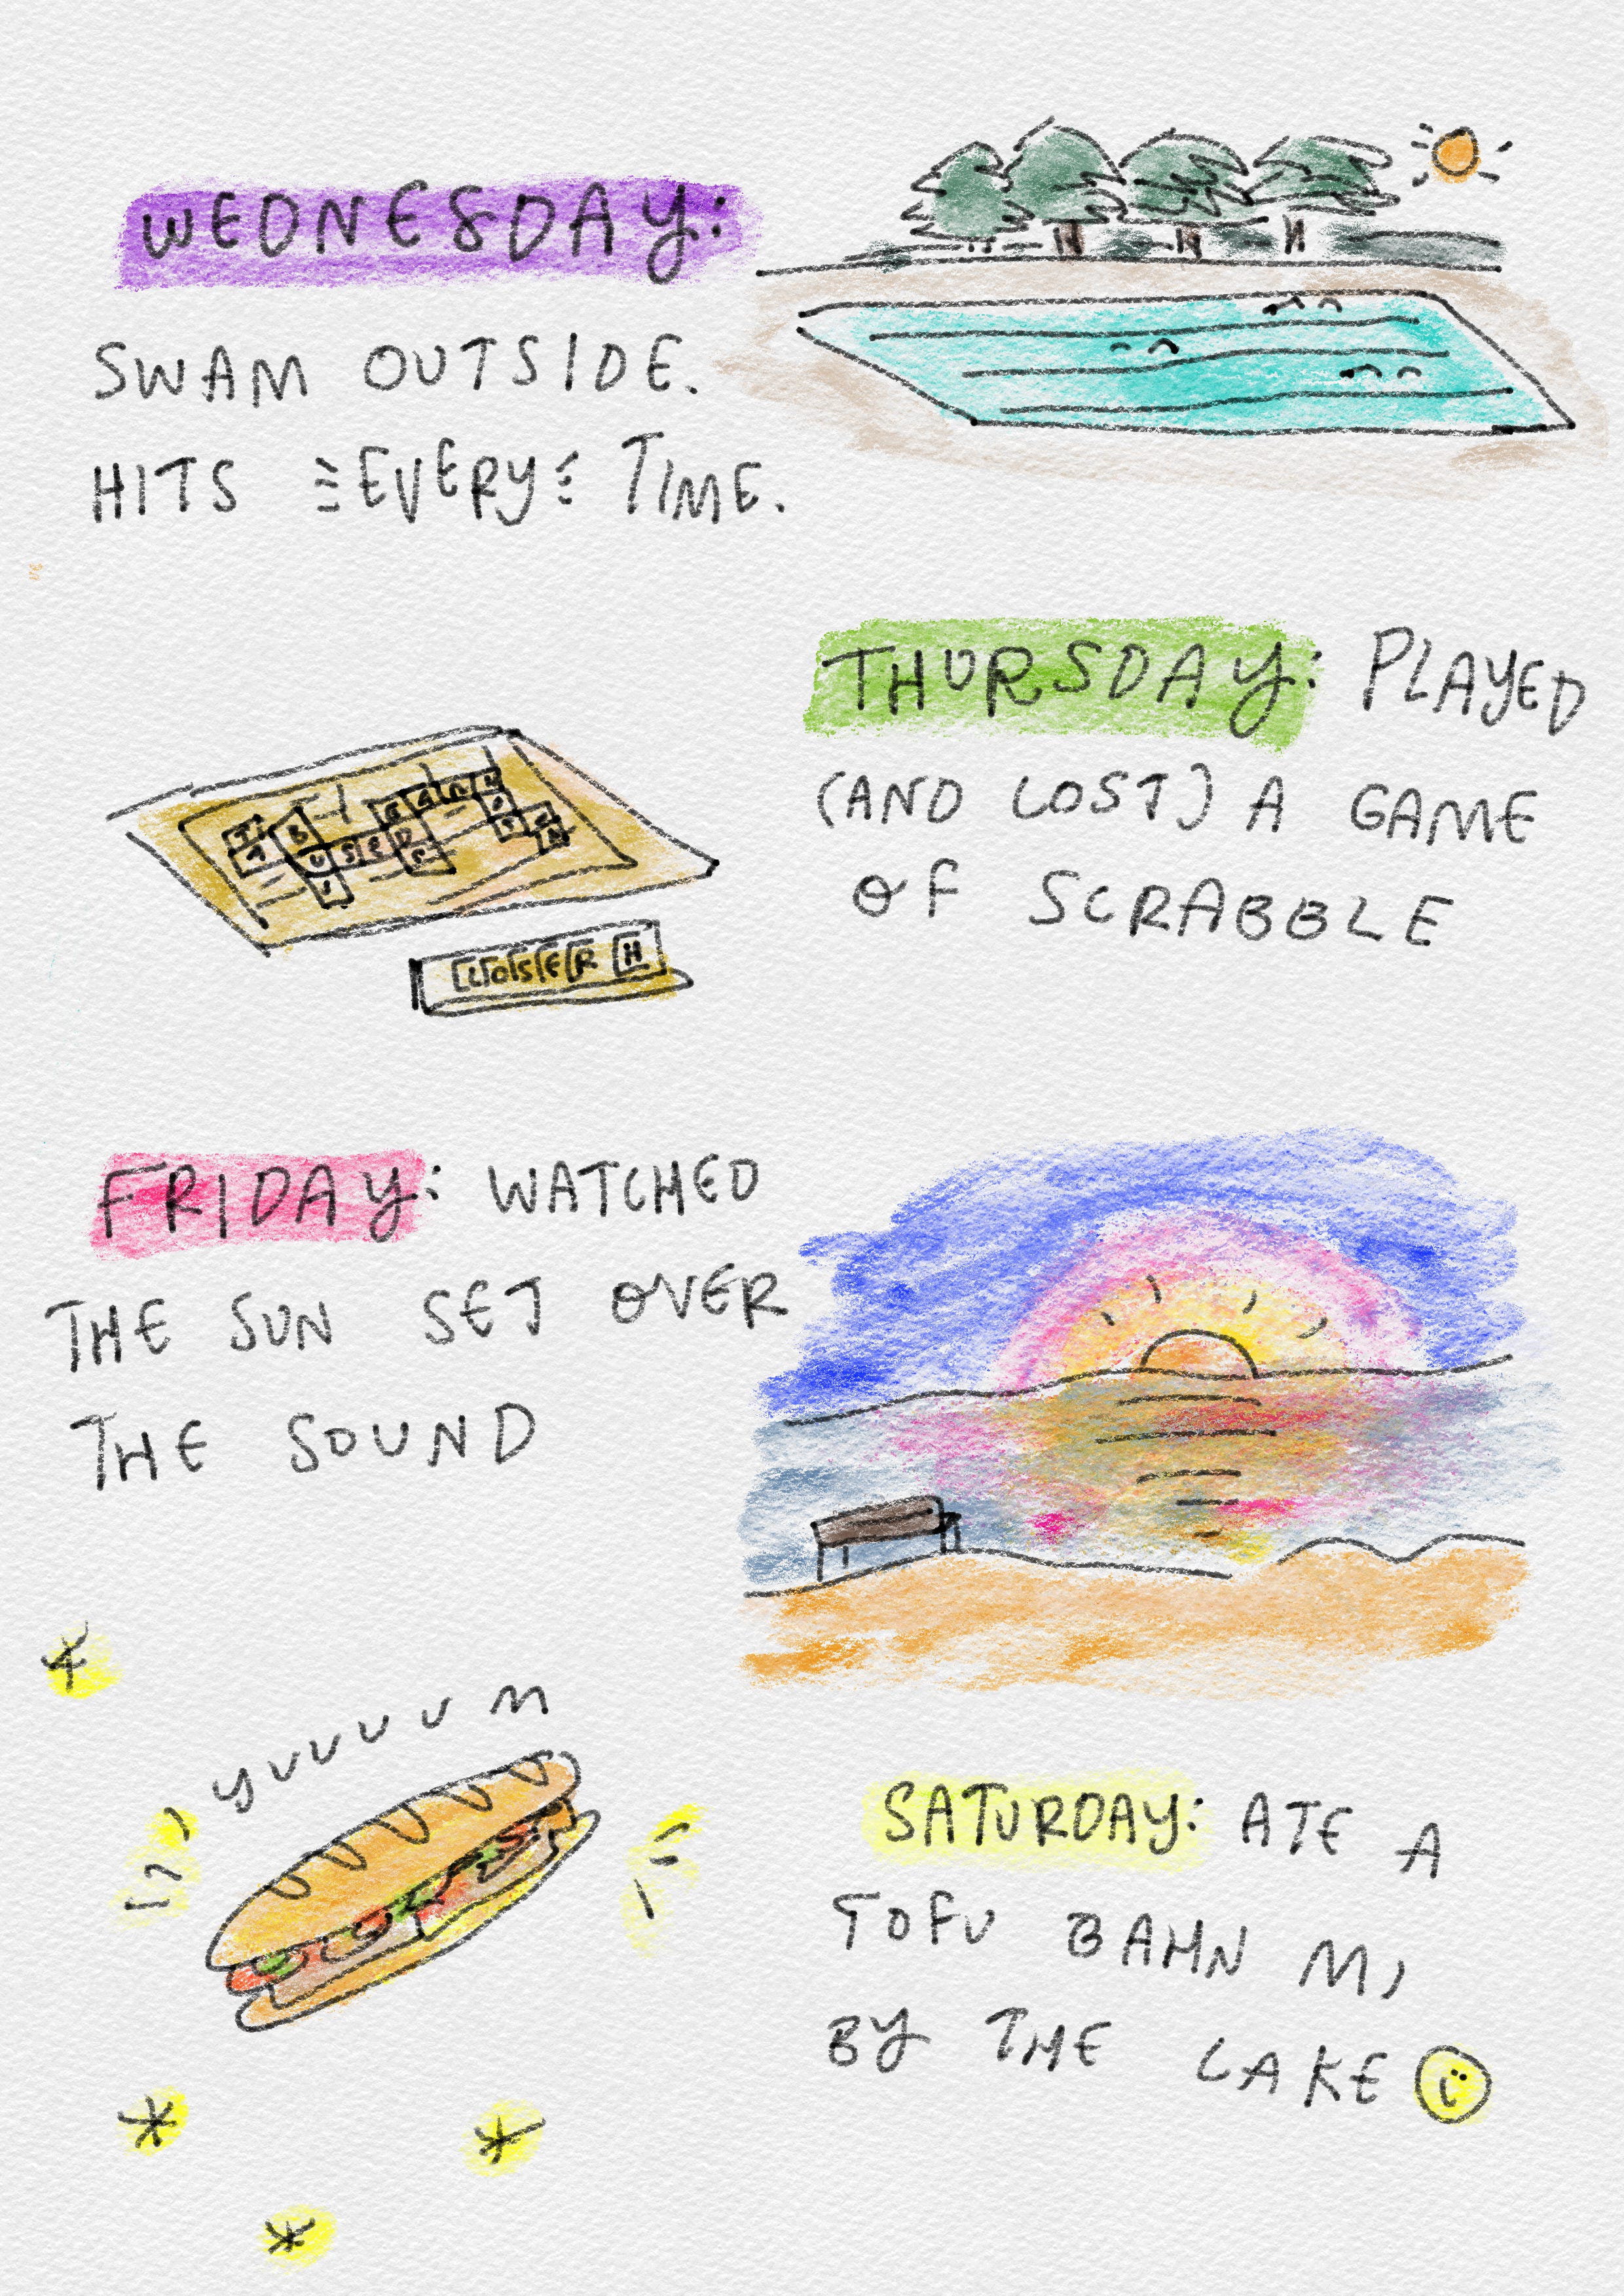 WEDNESDAY:
SWAM OUTSIDE.
HITS EVERY TIME.
THURSDAY: PLAYED
(AND LOST) A GAME
OF SCRABBLE
LOSER H
FRIDAY: WATCHED
THE SUN SET OVER
THE SOUND
yuuuuum
SATURDAY: ATE A
TOFU BAHN MI
BY THE LAKE